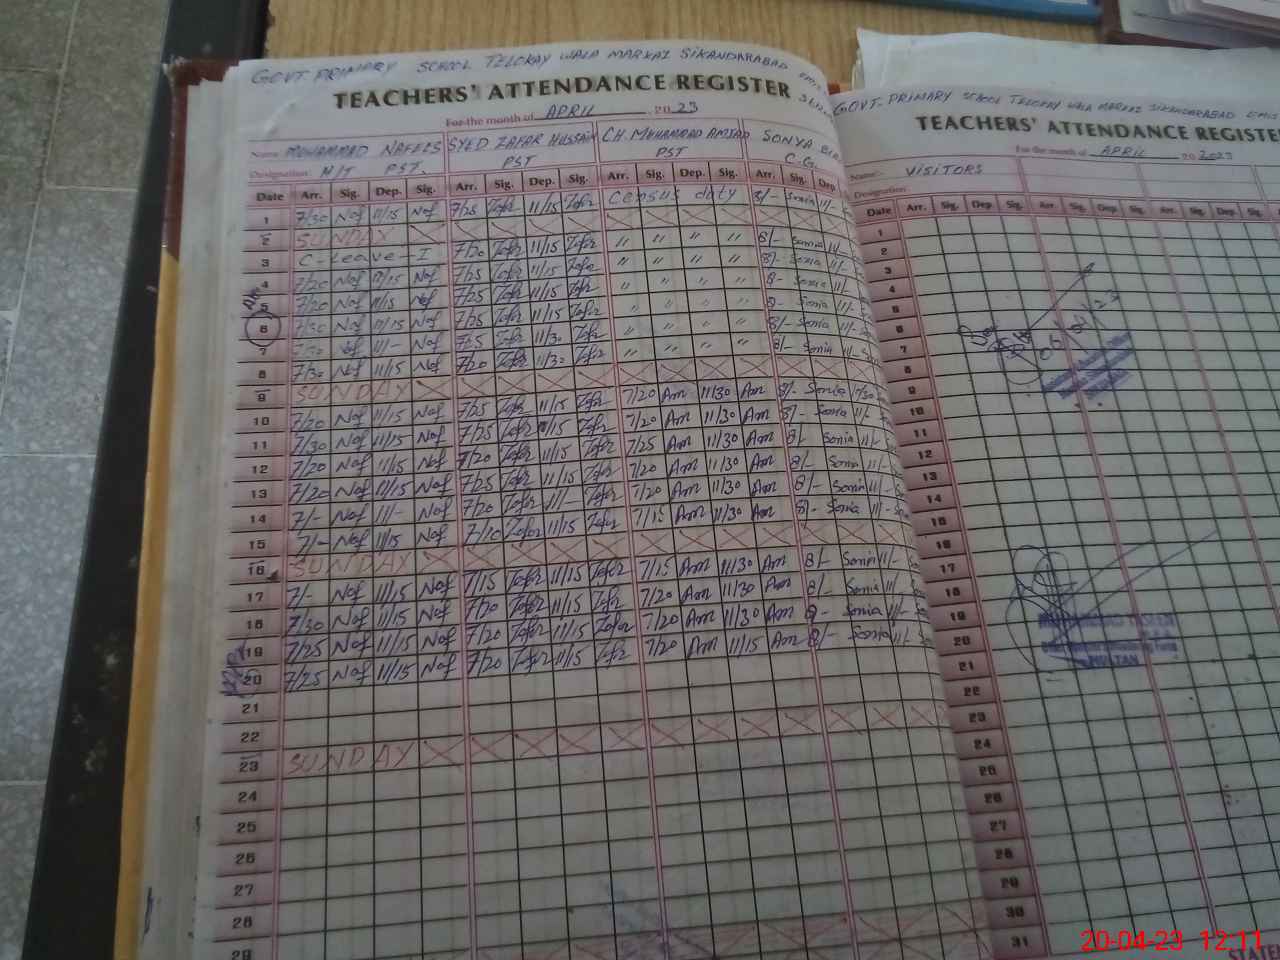 GOVT. PRIMARY SCHOOL TELOKAY WALA MARKAZ SIKANDARABAD EMIS
TEACHERS' ATTENDANCE REGISTER
For the month of APRIL 2023
Name MUHAMMAD NAFEES SYED ZAFAR HUSSAIN CH. MUHAMMAD AMJAD SONYA
Designation H/T PST. PST PST C.G.
Date Arr. Sig. Dep. Sig. Arr. Sig. Dep. Sig. Arr. Sig. Dep. Sig. Arr. Sig. Dep
1 7/30 Naf 11/15 Naf 7/25 Zafr 11/15 Zafr Census duty 8/- Sonia 11/-
2 SUNDAY
3 C-Leave-I 7/20 Zafr 11/15 Zafr " " " " 8/- Sonia 11/-
4 7/20 Naf 11/15 Naf 7/25 Zafr 11/15 Zafr " " " " 8/- Sonia 11/-
5 7/20 Naf 11/15 Naf 7/25 Zafr 11/15 Zafr " " " " 8- Sonia 11/-
6 7/30 Naf 11/15 Naf 7/25 Zafr 11/15 Zafr " " " " 8- Sonia 11/-
7 Naf 11/- Naf 7/25 Zafr 11/30 Zafr " " " " 8/- Sonia 11/-
8 7/30 Naf 11/15 Naf 7/20 Zafr 11/30 Zafr " " " " 8/- Sonia 11/-
9 SUNDAY
10 7/20 Naf 11/15 Naf 7/25 Zafr 11/15 Zafr 7/20 Am 11/30 Am 8/- Sonia 11/30
11 7/30 Naf 11/15 Naf 7/25 Zafr 11/15 Zafr 7/20 Am 11/30 Am 8/- Sonia 11/-
12 7/20 Naf 11/15 Naf 7/20 Zafr 11/15 Zafr 7/25 Am 11/30 Am 8/- Sonia 11/-
13 7/20 Naf 11/15 Naf 7/25 Zafr 11/15 Zafr 7/20 Am 11/30 Am 8/- Sonia 11/-
14 7/- Naf 11/- Naf 7/20 Zafr 11/- Zafr 7/20 Am 11/30 Am 8/- Sonia 11/-
15 7/- Naf 11/15 Naf 7/10 Zafr 11/15 Zafr 7/15 Am 11/30 Am 8/- Sonia 11/-
16 SUNDAY
17 7/- Naf 11/15 Naf 7/15 Zafr 11/15 Zafr 7/15 Am 11/30 Am 8/- Sonia 11/-
18 7/30 Naf 11/15 Naf 7/20 Zafr 11/15 Zafr 7/20 Am 11/30 Am 8/- Sonia 11/-
19 7/25 Naf 11/15 Naf 7/20 Zafr 11/15 Zafr 7/20 Am 11/30 Am 8- Sonia 11/-
20 7/25 Naf 11/15 Naf 7/20 Zafr 11/15 Zafr 7/20 Am 11/15 Am 8/- Sonia 11/-
21
22
23 SUNDAY
24
25
26
27
28
29
GOVT. PRIMARY SCHOOL TELOKAY WALA MARKAZ SIKANDARABAD EMIS
TEACHERS' ATTENDANCE REGISTE
For the month of APRIL 2023
Name:- VISITORS
Designation:
Date Arr. Sig. Dep. Sig. Arr. Sig. Dep. Sig. Arr. Sig. Dep.
1
2
3
4
5
6
7
8
9
10
11
12
13
14
15
16
17
18
19
20
21
22
23
24
25
26
27
28
29
30
31
MULTAN
20-04-23 12:11